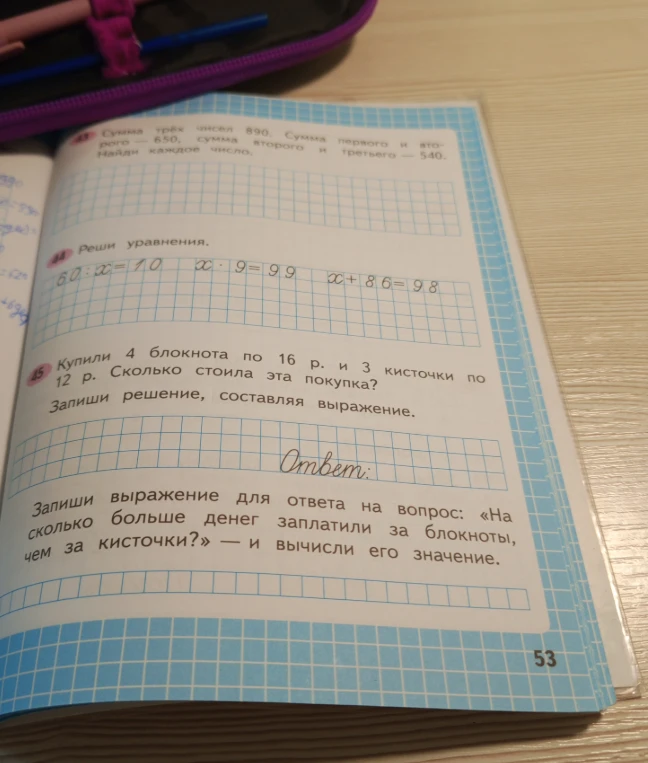 43 Сумма трёх чисел 890. Сумма первого и вто-
рого — 650, сумма второго и третьего — 540.
Найди каждое число.
44 Реши уравнения.
60 : x = 10 x · 9 = 99 x + 86 = 98
45 Купили 4 блокнота по 16 р. и 3 кисточки по
12 р. Сколько стоила эта покупка?
Запиши решение, составляя выражение.
Ответ:
Запиши выражение для ответа на вопрос: «На
сколько больше денег заплатили за блокноты,
чем за кисточки?» — и вычисли его значение.
53